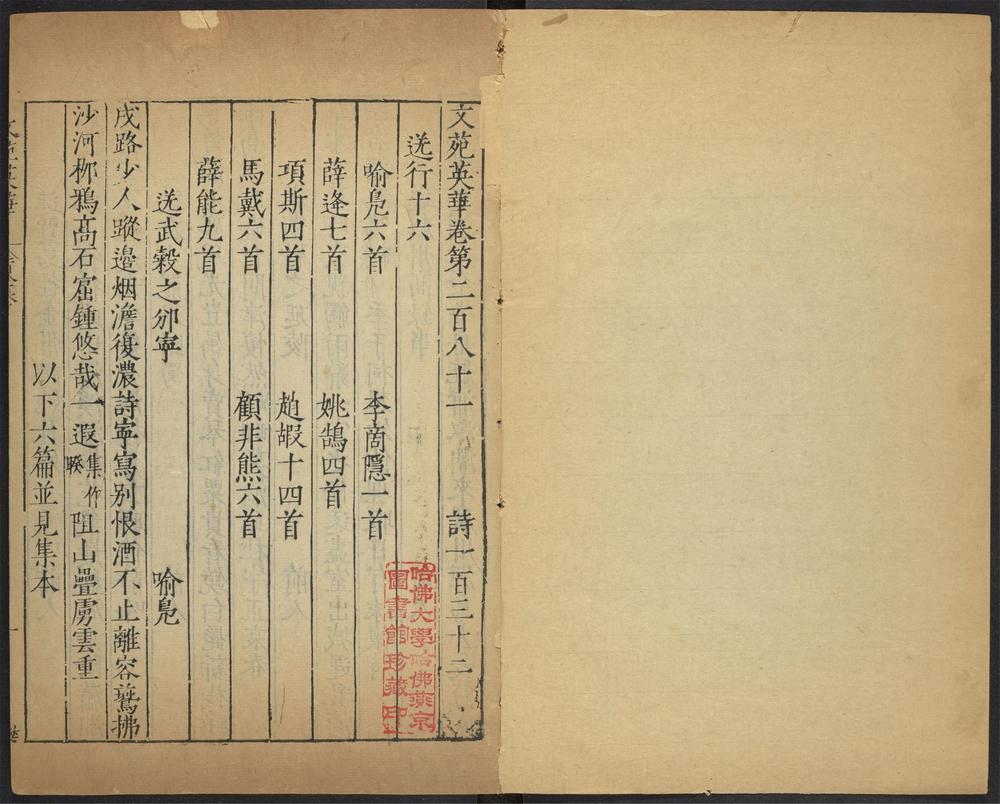 文苑英華卷第二百八十一 詩一百三十二
送行十六
喻鳧六首 李商隱一首
薛逢七首 姚鵠四首
項斯四首 趙嘏十四首
馬戴六首 顧非熊六首
薛能九首
送武瑴之邠寜 喻鳧
戍路少人蹤邉烟澹復濃詩寜寫别恨酒不止離容鴛拂
沙河桞鴉髙石窟鍾悠哉一遐集作睽阻山疊虜雲重
以下六篇並見集本
哈佛大學哈佛燕京
圖書館珍藏印